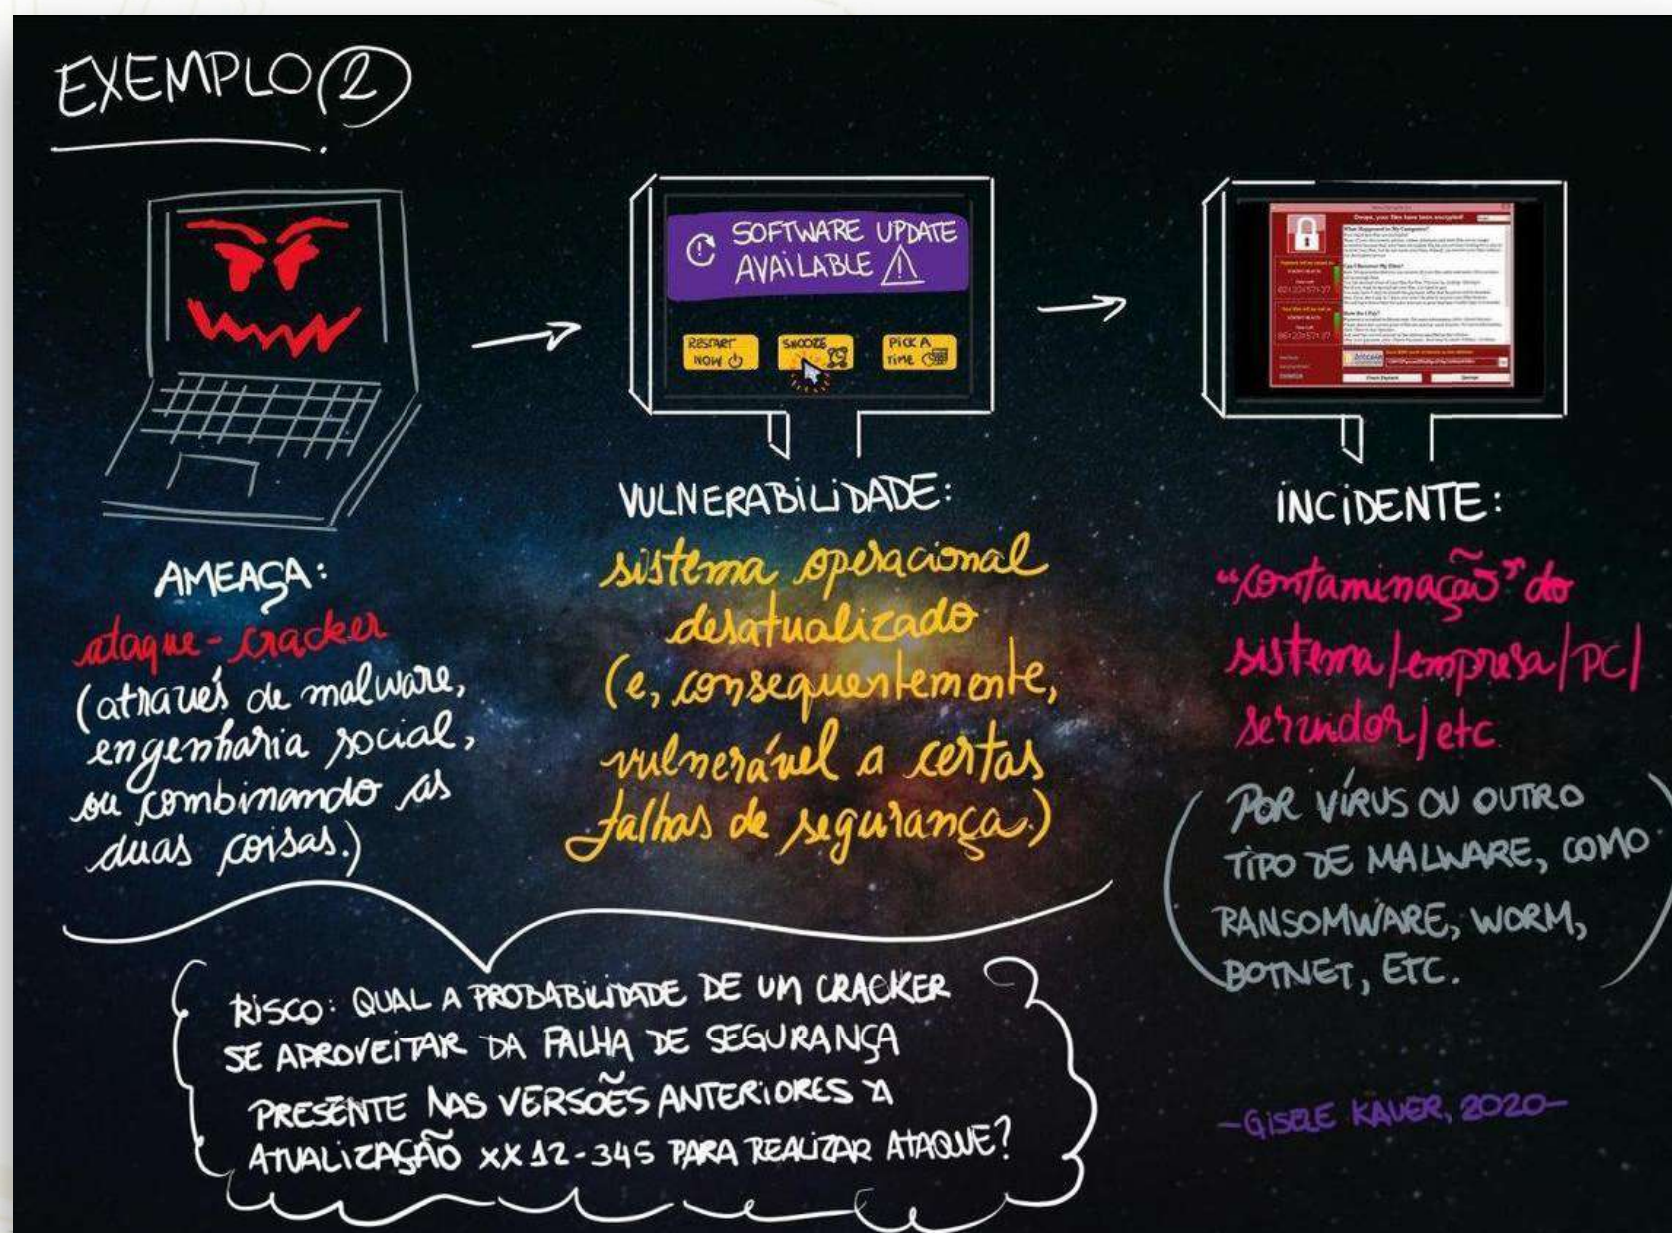 EXEMPLO 2
SOFTWARE UPDATE
AVAILABLE
RESTART
NOW
SNOOZE
PICK A
TIME
Ooops, your files have been encrypted!
What Happened to My Computer?
Can I Recover My Files?
How Do I Pay?
bitcoin
Check Payment
Decrypt
AMEAÇA:
ataque-cracker
(através de malware,
engenharia social,
ou combinando as
duas coisas.)
VULNERABILIDADE:
sistema operacional
desatualizado
(e, consequentemente,
vulnerável a certas
falhas de segurança.)
INCIDENTE:
"contaminação" do
sistema/empresa/PC/
servidor/etc
(POR VÍRUS OU OUTRO
TIPO DE MALWARE, COMO
RANSOMWARE, WORM,
BOTNET, ETC.)
RISCO: QUAL A PROBABILIDADE DE UM CRACKER
SE APROVEITAR DA FALHA DE SEGURANÇA
PRESENTE NAS VERSÕES ANTERIORES À
ATUALIZAÇÃO XX12-345 PARA REALIZAR ATAQUE?
-GISELE KAUER, 2020-